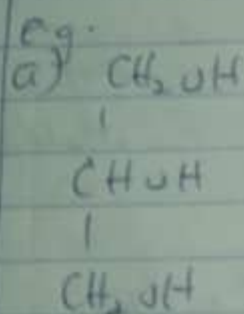 eg.
a) CH₂OH
|
CHOH
|
CH₂OH